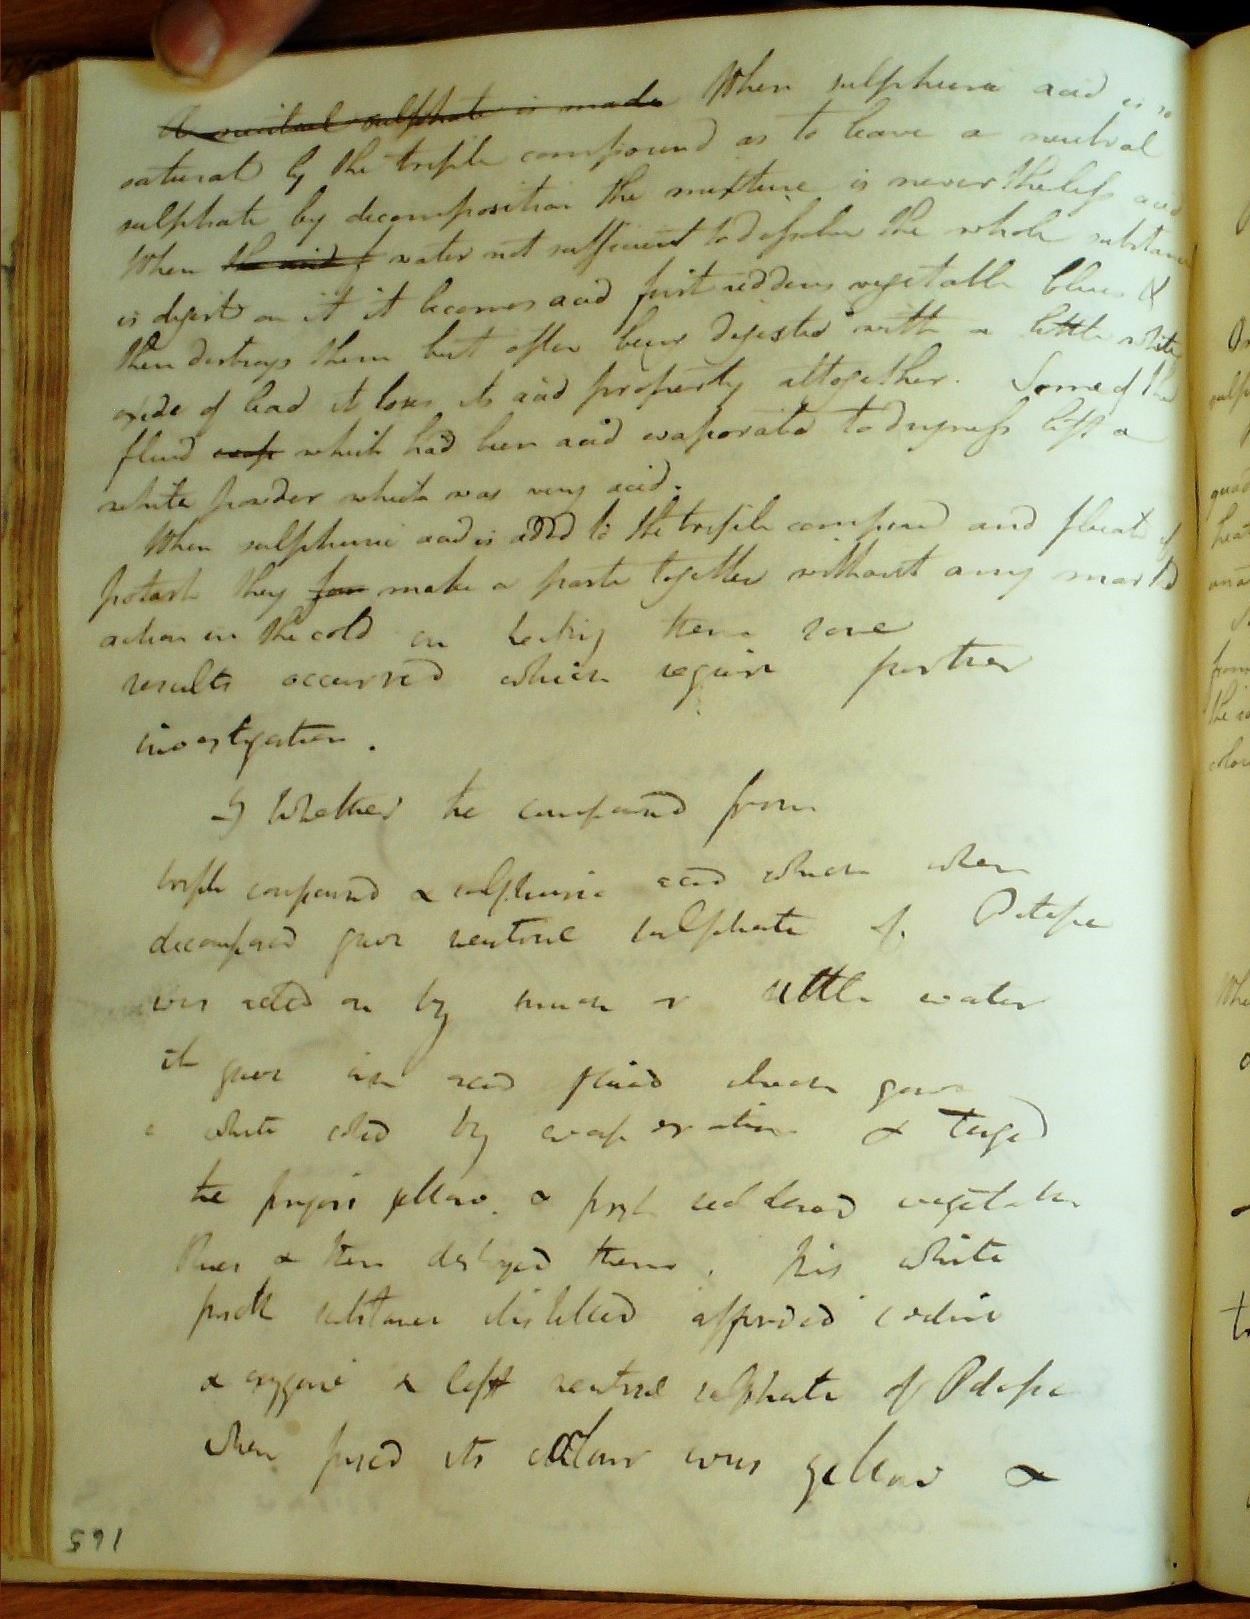 A neutral sulphate is made When sulphuric acid is so
saturat by the triple compound as to leave a neutral
sulphate by decomposition the mixture is nevertheless acid
When the acid f water not sufficient to dissolve the whole substance
is digest on it it becomes acid first reddens vegetable blues &
then destroys them but after being digested with a little white
oxide of lead it loses its acid property altogether. Some of the
fluid evap which had been acid evaporated to dryness left a
white powder which was very acid.
When sulphuric acid is added to the triple compound and fluate of
potash they for make a paste together without any marked
action in the cold on heating them some
results occurred which require further
investigation.
Whether the compound from
triple compound & sulphuric acid which when
decomposed gave neutral sulphate of Potassa
was acted on by much or little water
it gave an acid fluid which gave
a white solid by evaporation & tinged
the fingers yellow. & first reddened vegetable
blues & then destroyed them. This white
substance distilled afforded iodine
& oxygene & left neutral sulphate of Potassa
when fused its colour was yellow &
165